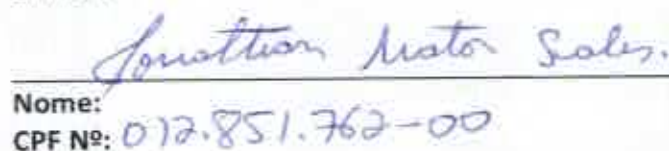 Jonathan Mator Scales.
Nome:
CPF Nº: 012.851.762-00